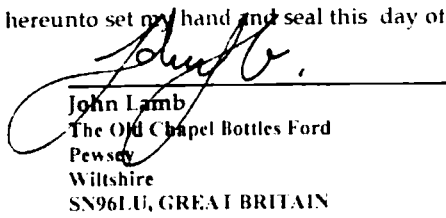 hereunto set my hand and seal this day of
John Lamb
The Old Chapel Bottles Ford
Pewsey
Wiltshire
SN96LU, GREAT BRITAIN